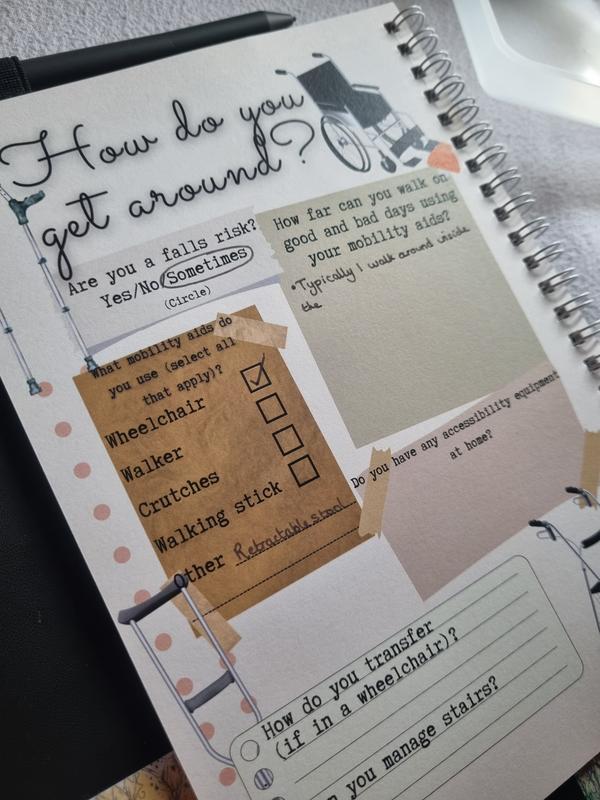 How do you
get around?
Are you a falls risk?
Yes/No/Sometimes
(Circle)
How far can you walk on
good and bad days using
your mobility aids?
• Typically I walk around inside
the
What mobility aids do
you use (select all
that apply)?
Wheelchair
Walker
Crutches
Walking stick
Other Retractable stool
Do you have any accessibility equipment
at home?
How do you transfer
(if in a wheelchair)?
you manage stairs?